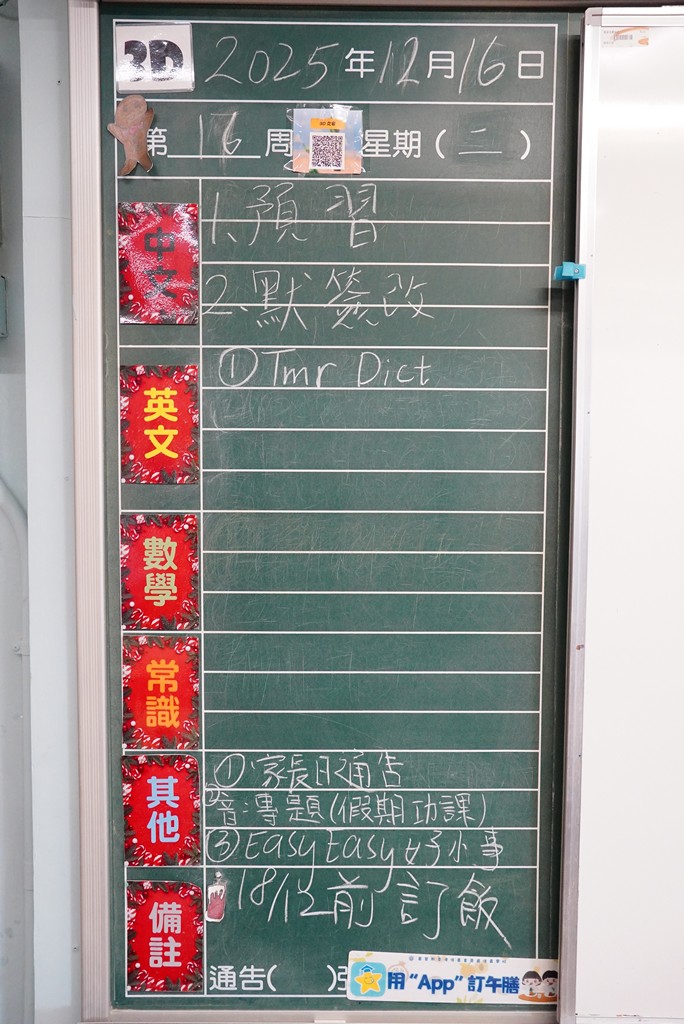 3D 2025年12月16日
第 16 周 星期(二)
中文
1、預習
2、默簽改
英文
①Tmr Dict
數學
常識
其他
①家長日通告
②音:專題(假期功課)
③EasyEasy好小事
備註
18/12前訂飯
通告( )
用“App”訂午膳